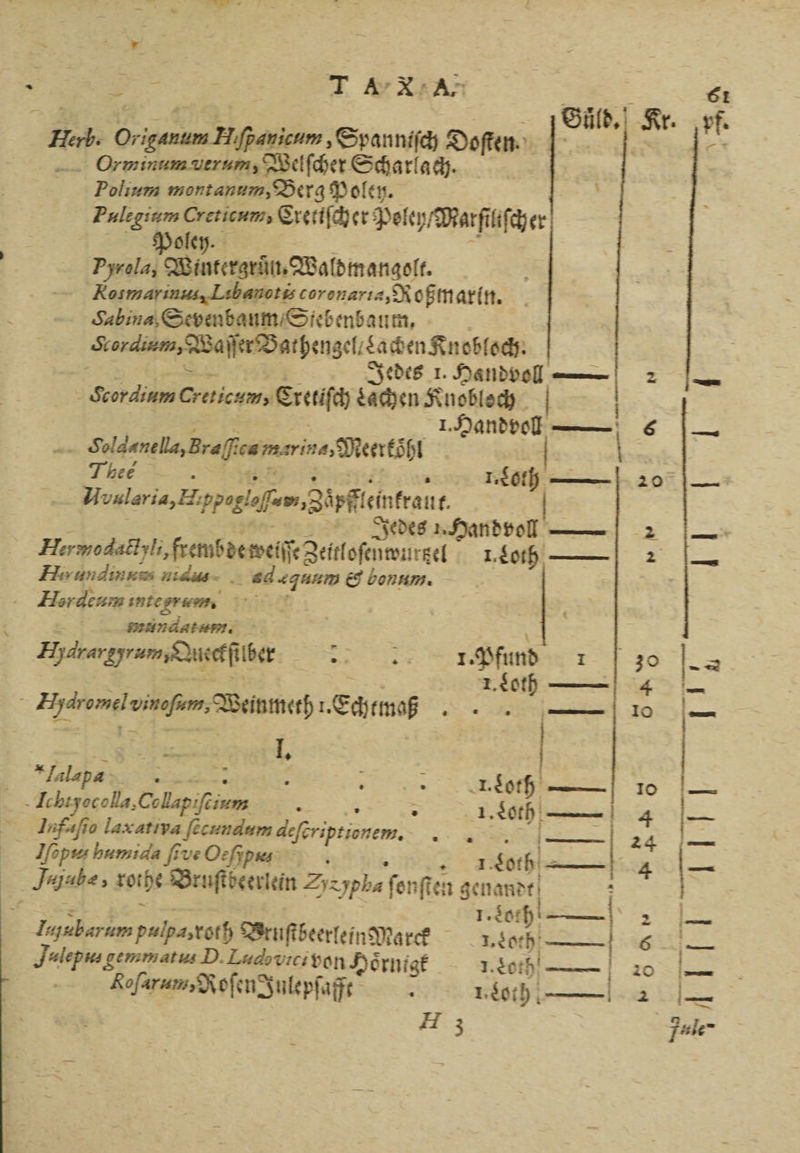 TAXA.
61
Gůld. Kr. pf.
Herb. Origanum Hispanicum, Spannisch Dosten.
Orminum verum, Welscher Scharlach.
Polium montanum, Berg Poley.
Pulegium Creticum, Cretischer Poley/Marsilischer
Poley.
Pyrola, Wintergrün. Waldmangolt.
Rosmarinus, Libanotis coronaria, Roßmarin.
Sabina, Sevenbaum/Siebenbaum.
Scordium, Wasser Bathengel/Lachen Knobloch.
Jedes 1. Handvoll — 2 —
Scordium Creticum, Cretisch Lachen Knobloch
1. Handvoll — 6 —
Soldanella, Brassica marina, Meerköhl
Thee . . . . . 1. Loth — 20 —
Uvularia, Hippoglossum, Zäpffleinkraut.
Jedes 1. Handvoll — 2 —
Hermodactyli, frembde weisse Zeitlosenwurzel 1. Loth — 2 —
Hirundinum nidus ad æquum & bonum.
Hordeum integrum,
mundatum.
Hydrargyrum, Quecksilber . . 1. Pfund 1 30 —
1. Loth — 4 —
Hydromel vinosum, Weinmeth 1. Echtmaß . . . — 10 —
I.
*Ialapa . . . . . 1. Loth — 10 —
Ichtyocolla, Collapiscium . . . 1. Loth — 4 —
Infusio laxativa secundum descriptionem. . . . . — 24 —
Isopus humida sive Oesypus . . . 1. Loth — 4 —
Jujubæ, rothe Brustbeerlein Zyzypha sonsten genandt
1. Loth — 2 —
Iujubarum pulpa, roth Brustbeerlein Marck 1. Loth — 6 —
Julepus gemmatus D. Ludovici von Hörnigk 1. Loth — 20 —
Rosarum, Rosen Julepsafft . 1. Loth. — 2 —
H 3
Jule-